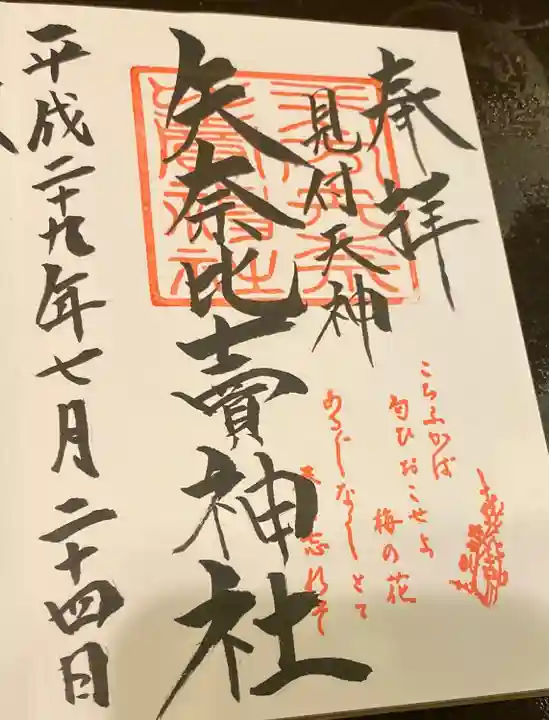 奉拝
見付天神
矢奈比賣神社
平成二十九年七月二十四日
こちふかば
匂ひおこせよ
梅の花
あるじなしとて
春な忘れそ